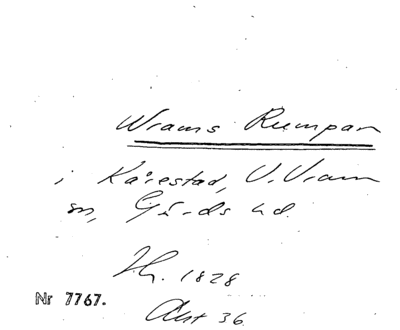 Wrams Rumpan
i Kårestad, V. Vram
sn, Gärds hd.
Hr. 1828
Nr 7767.
Akt 36